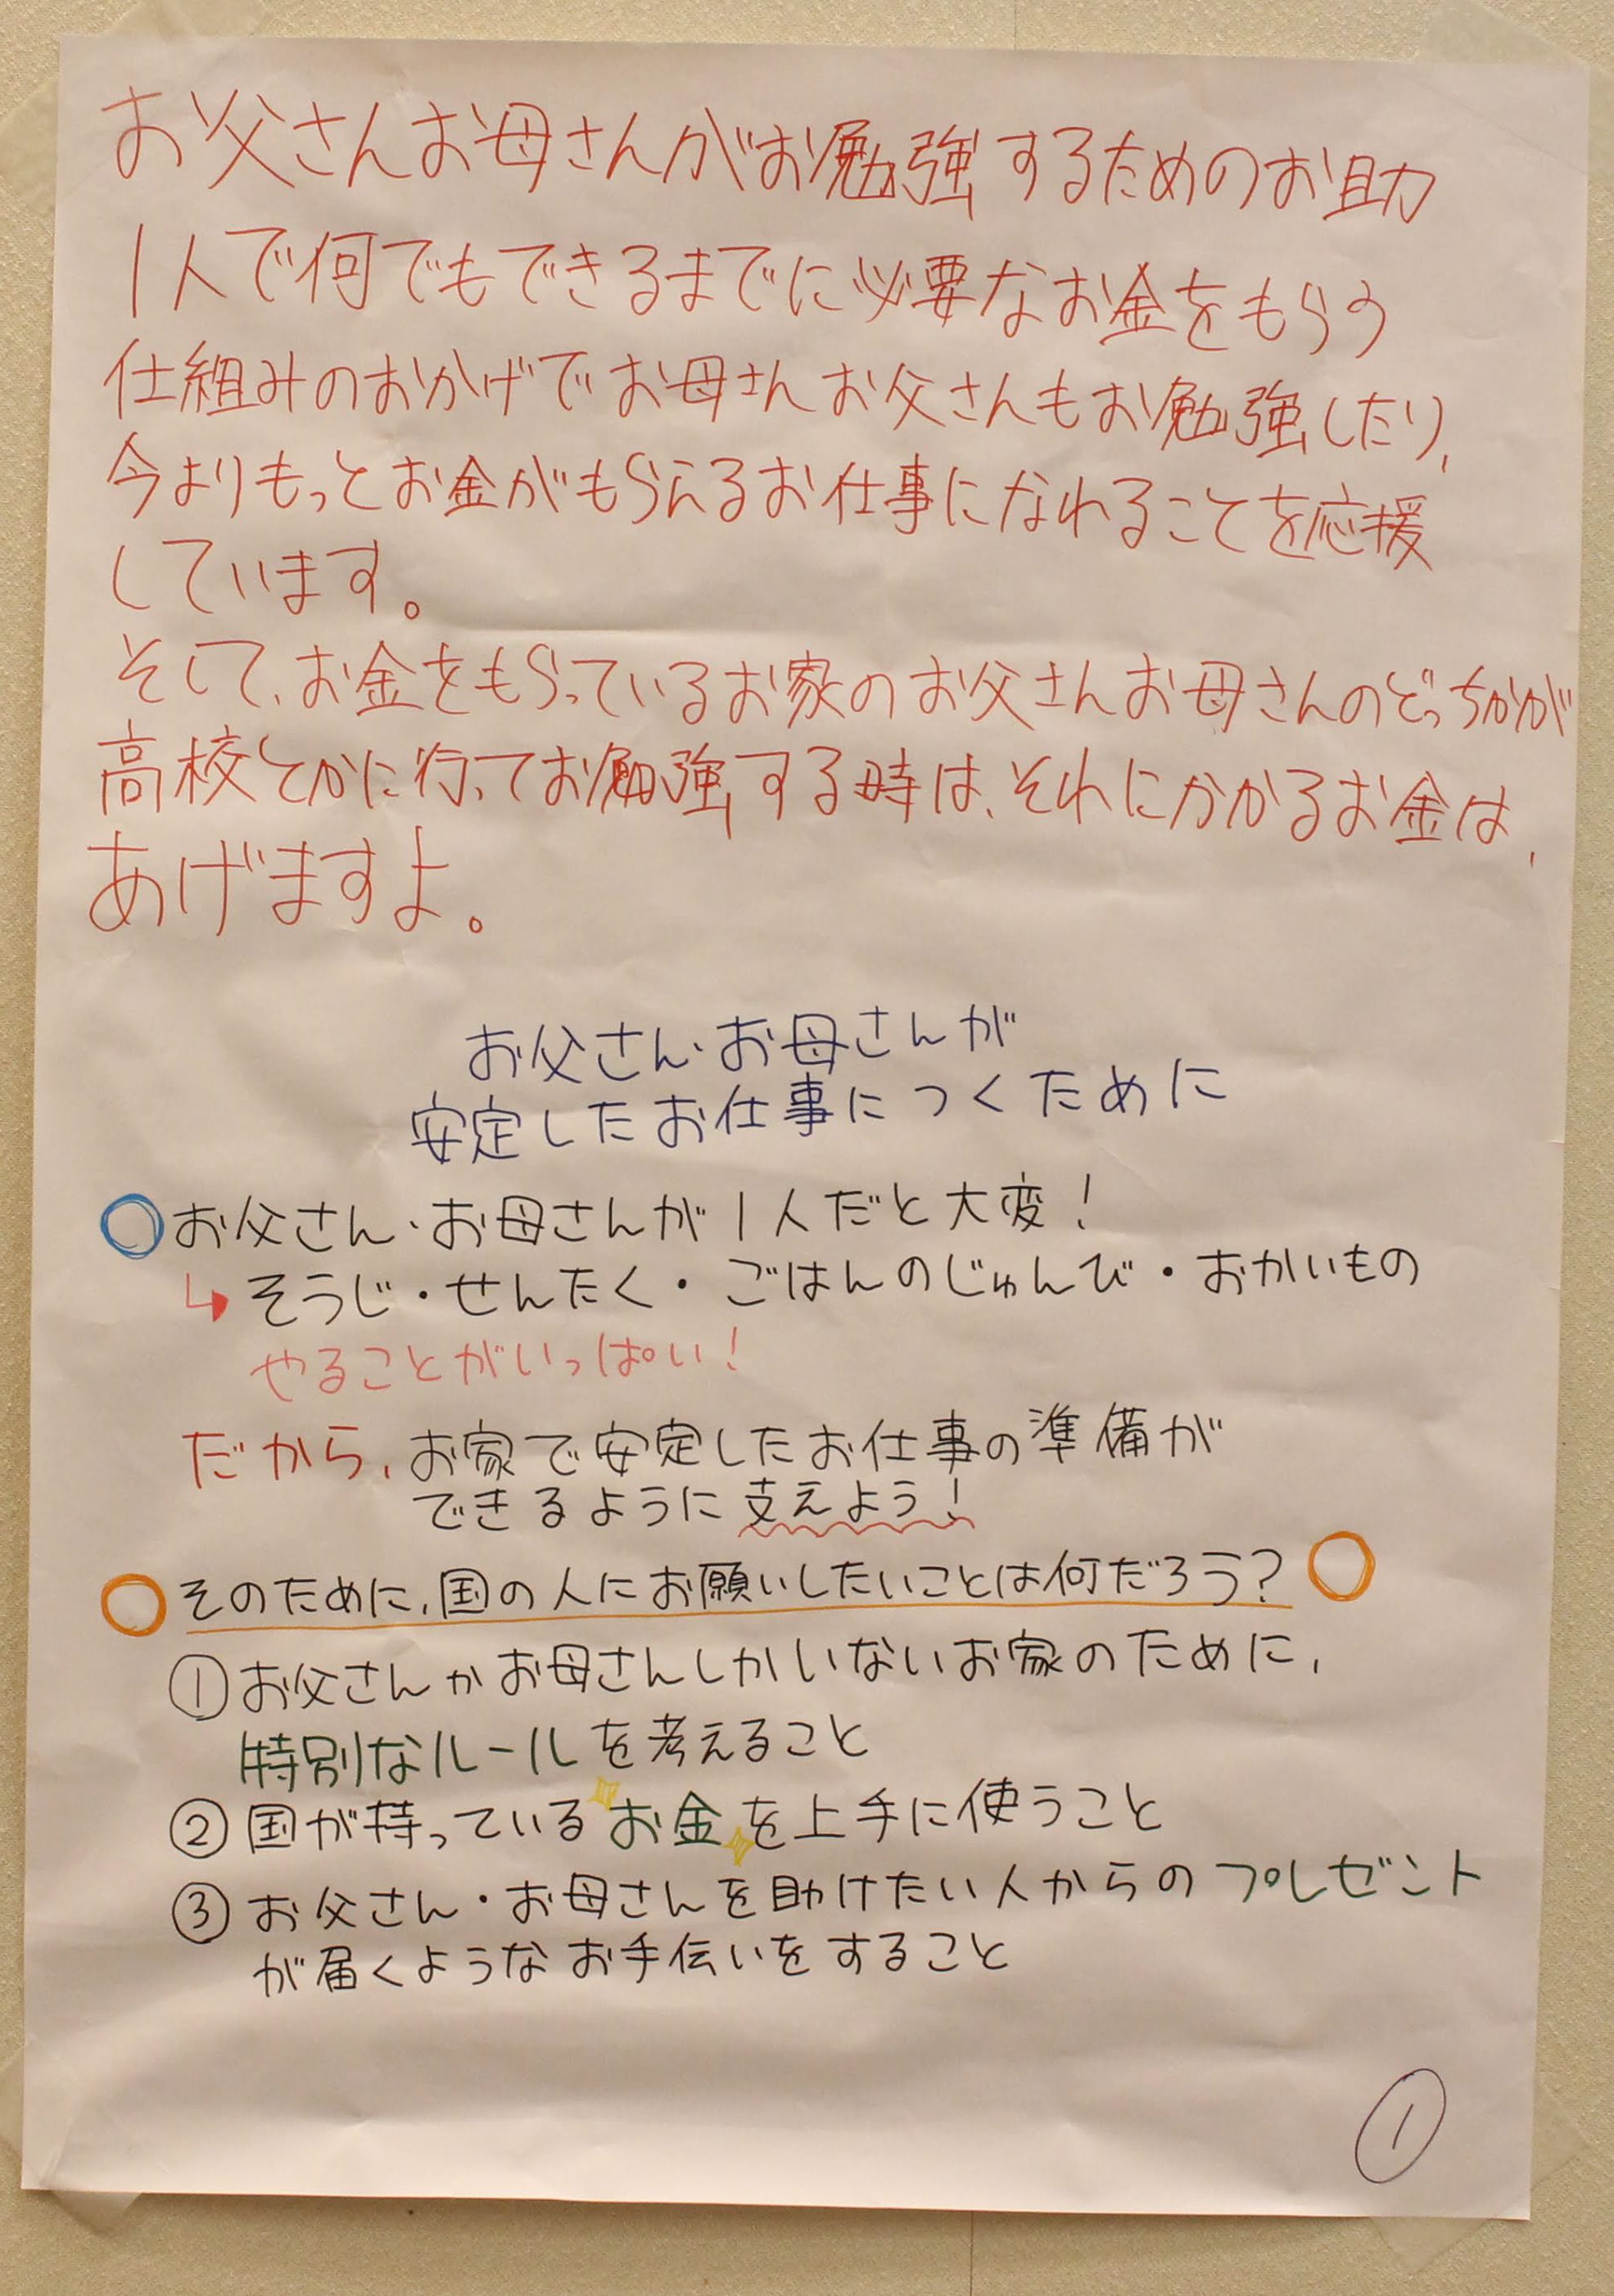 お父さんお母さんがお勉強するためのお助
1人で何でもできるまでに必要なお金をもらう
仕組みのおかげでお母さんお父さんもお勉強したり、
今よりもっとお金がもらえるお仕事になれることを応援
しています。
そして、お金をもらっているお家のお父さんお母さんのどっちかが
高校とかに行ってお勉強する時は、それにかかるお金は、
あげますよ。
お父さん・お母さんが
安定したお仕事につくために
○お父さん・お母さんが1人だと大変!
↳そうじ・せんたく・ごはんのじゅんび・おかいもの
やることがいっぱい!
だから、お家で安定したお仕事の準備が
できるように支えよう!
○そのために、国の人にお願いしたいことは何だろう?○
①お父さんかお母さんしかいないお家のために、
特別なルールを考えること
②国が持っているお金を上手に使うこと
③お父さん・お母さんを助けたい人からのプレゼント
が届くようなお手伝いをすること
①